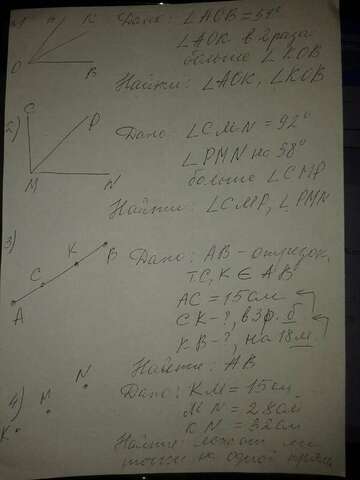 Дано: ∠AOB=54°
∠AOK в 2 раза
больше ∠KOB
Найти: ∠AOK, ∠KOB
O B
2) C P
Дано: ∠CMN = 92°
∠PMN на 38°
больше ∠CMP
M N
Найти: ∠CMP, ∠PMN
3)
A C K B
Дано: AB - отрезок,
т.C, K ∈ AB
AC = 15 см
CK - ?, в 3 р. б
KB - ?, на 18 м.
Найти: AB
4)
K M N
Дано: KM = 15 см
MN = 28 см
KN = 32 см
Найти: лежат ли
точки на одной прямой